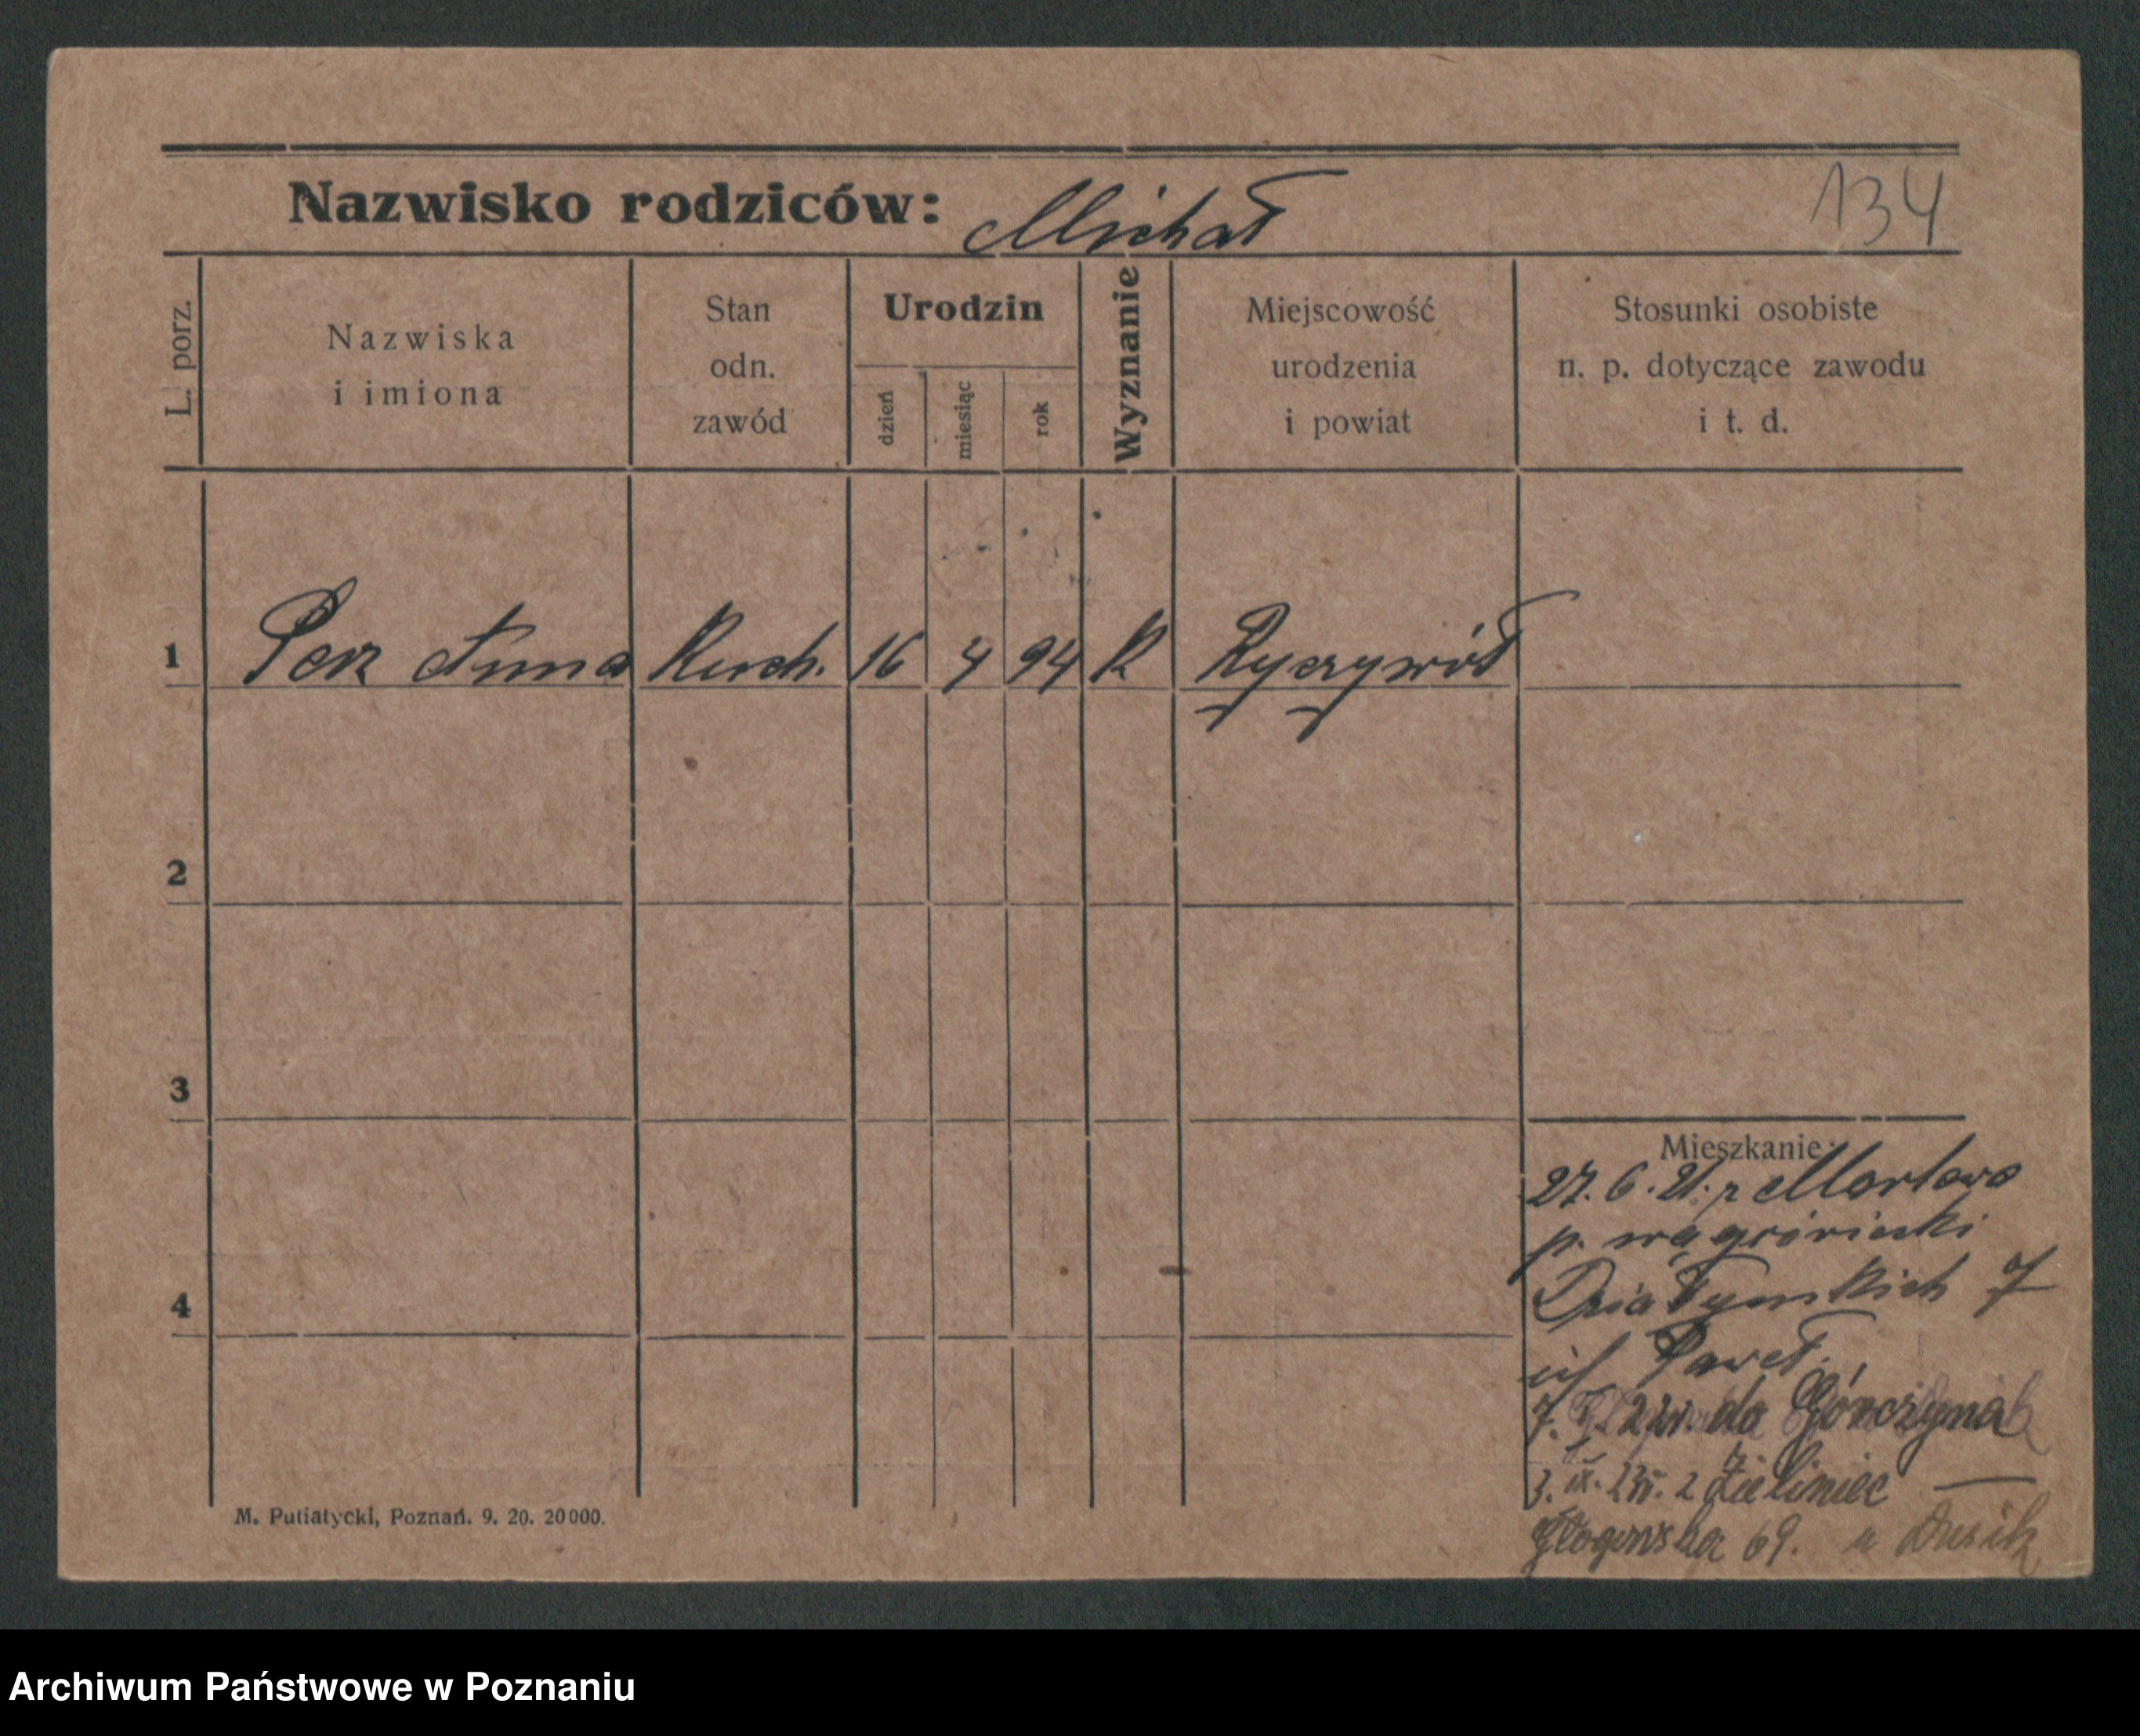 Nazwisko rodziców: Michał 134
L. porz.
Nazwiska i imiona
Stan odn. zawód
Urodzin
dzień
miesiąc
rok
Wyznanie
Miejscowość urodzenia i powiat
Stosunki osobiste n. p. dotyczące zawodu i t. d.
1 Perz Anna Kuch. 16 4 94 K Ryczywół
2
3
4
Mieszkanie:
27. 6. 21. z
p. wągrowiecki
Działyńskich 7
Paweł
do Górczyna
3. IX. Zieliniec
Głogowska 69. u
M. Putiatycki, Poznań. 9. 20. 20000.
Archiwum Państwowe w Poznaniu